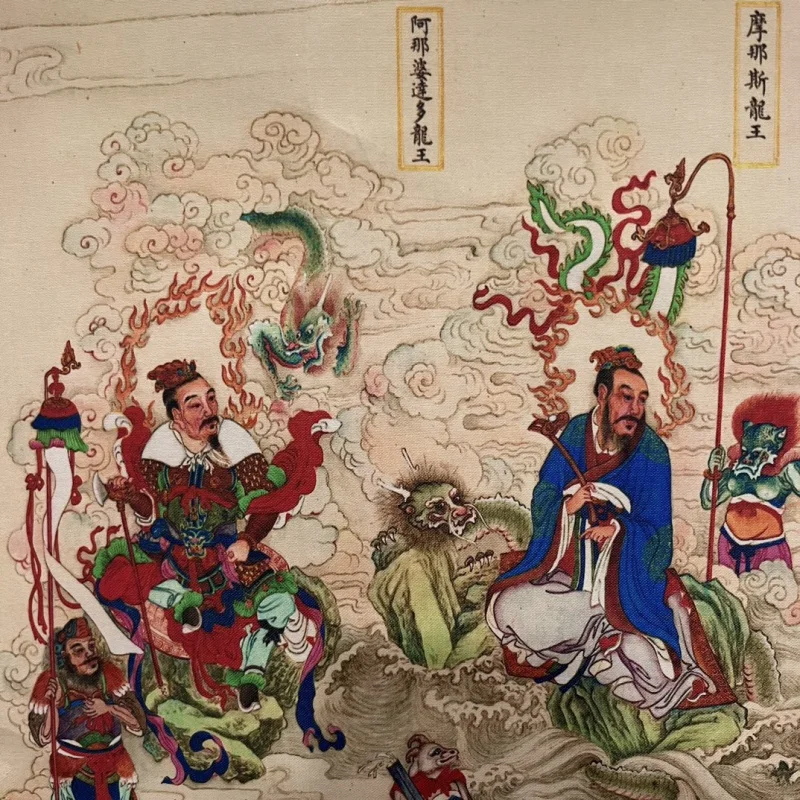 摩那斯龍王
阿那婆達多龍王